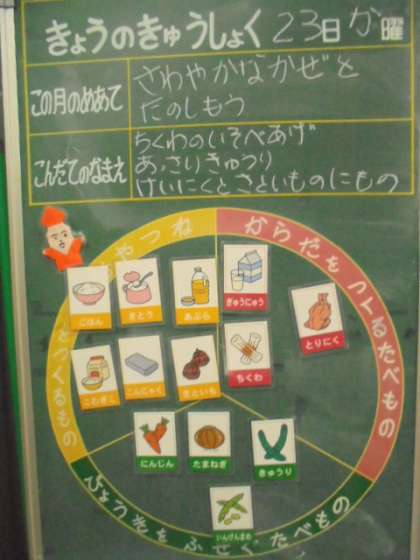 きょうのきゅうしょく 23日 か 曜
この月のめあて
さわやかなかぜを
たのしもう
こんだてのなまえ
ちくわのいそべあげ
あっさりきゅうり
けいにくとさといものにもの
やつね
をつくるもの
からだをつくるたべもの
ごはん
さとう
あぶら
ぎゅうにゅう
とりにく
こむぎこ
こんにゃく
さといも
ちくわ
にんじん
たまねぎ
きゅうり
いんげんまめ
びょうきをふせぐたべもの